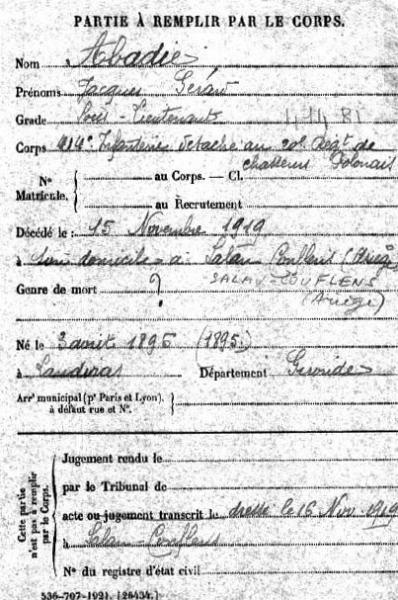 PARTIE À REMPLIR PAR LE CORPS.
Nom Abadie
Prénoms Jacques Gérard
Grade Sous-Lieutenant
Corps 414e Infanterie détaché au 20e Régt de
chasseurs Polonais
Nº Matricule. au Corps. — Cl.
au Recrutement
Décédé le : 15 Novembre 1919
à son domicile à Salau Couflens (Ariège
Genre de mort ? SALAU-COUFLENS
(Ariège)
Né le 3 août 1896 (1895)
à Landiras Département Gironde
Arrt municipal (pr Paris et Lyon),
à défaut rue et Nº.
Cette partie
n'est pas à remplir
par le Corps.
Jugement rendu le
par le Tribunal de
acte ou jugement transcrit le dressé le 16 Nov. 1919
à Salau-Couflens
Nº du registre d'état civil
536-707-1921. [26434.]